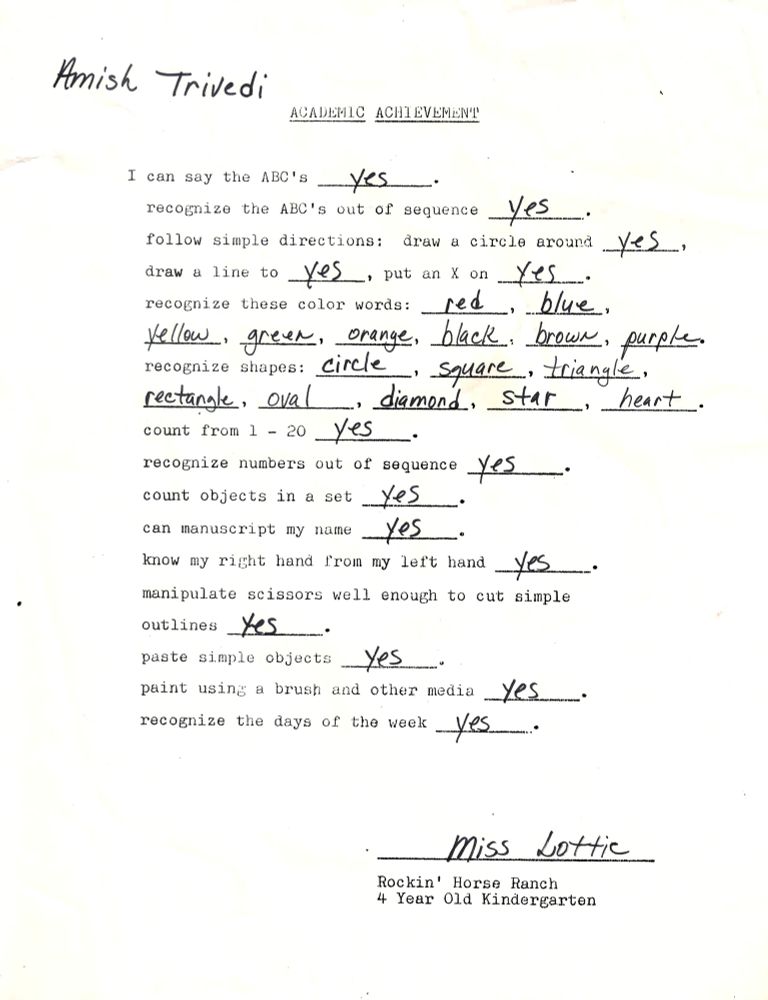 Amish Trivedi
ACADEMIC ACHIEVEMENT
I can say the ABC's yes.
recognize the ABC's out of sequence yes.
follow simple directions: draw a circle around yes,
draw a line to yes, put an X on yes.
recognize these color words: red, blue,
yellow, green, orange, black, brown, purple.
recognize shapes: circle, square, triangle,
rectangle, oval, diamond, star, heart.
count from 1 - 20 yes.
recognize numbers out of sequence yes.
count objects in a set yes.
can manuscript my name yes.
know my right hand from my left hand yes.
manipulate scissors well enough to cut simple
outlines yes.
paste simple objects yes.
paint using a brush and other media yes.
recognize the days of the week yes.
Miss Lottie
Rockin' Horse Ranch
4 Year Old Kindergarten